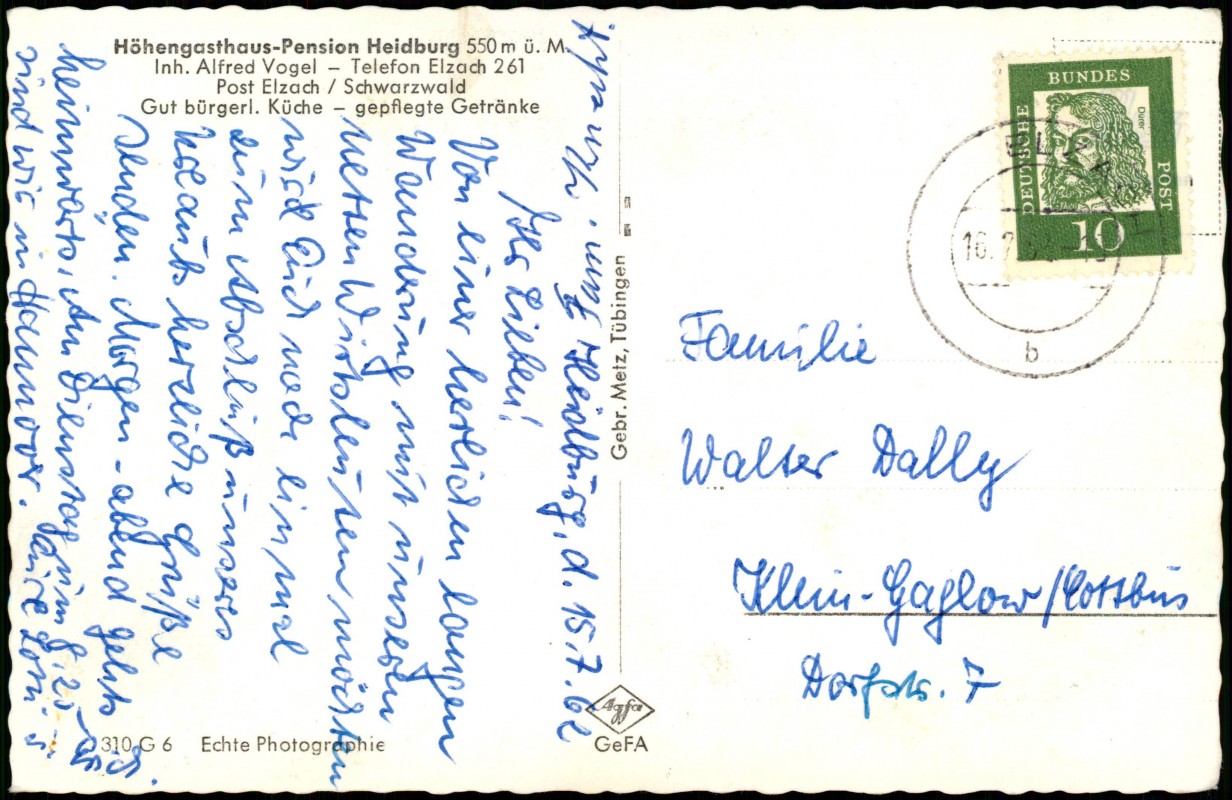 Höhengasthaus-Pension Heidburg 550 m ü. M.
Inh. Alfred Vogel – Telefon Elzach 261
Post Elzach / Schwarzwald
Gut bürgerl. Küche – gepflegte Getränke
Heidburg, d. 15.7.62
Ihr Lieben!
Von einer herlichen langen
Wanderung mit unseren
netten Wirtsleuten möchten
wir Euch noch einmal
zum Abschluß unseres
Urlaubs herzliche Grüße
senden. Morgen-abend gehts
heimwärts, Am Dienstag um 8,20
sind wir in Hannover. Eure Loni u.
Gebr. Metz, Tübingen
Agfa
GeFA
310 G 6 Echte Photographie
DEUTSCHE BUNDES POST
Dürer
10
ELZACH
16.7.
b
Familie
Walter Dally
Klein-Gaglow/Cottbus
Dorfstr. 7